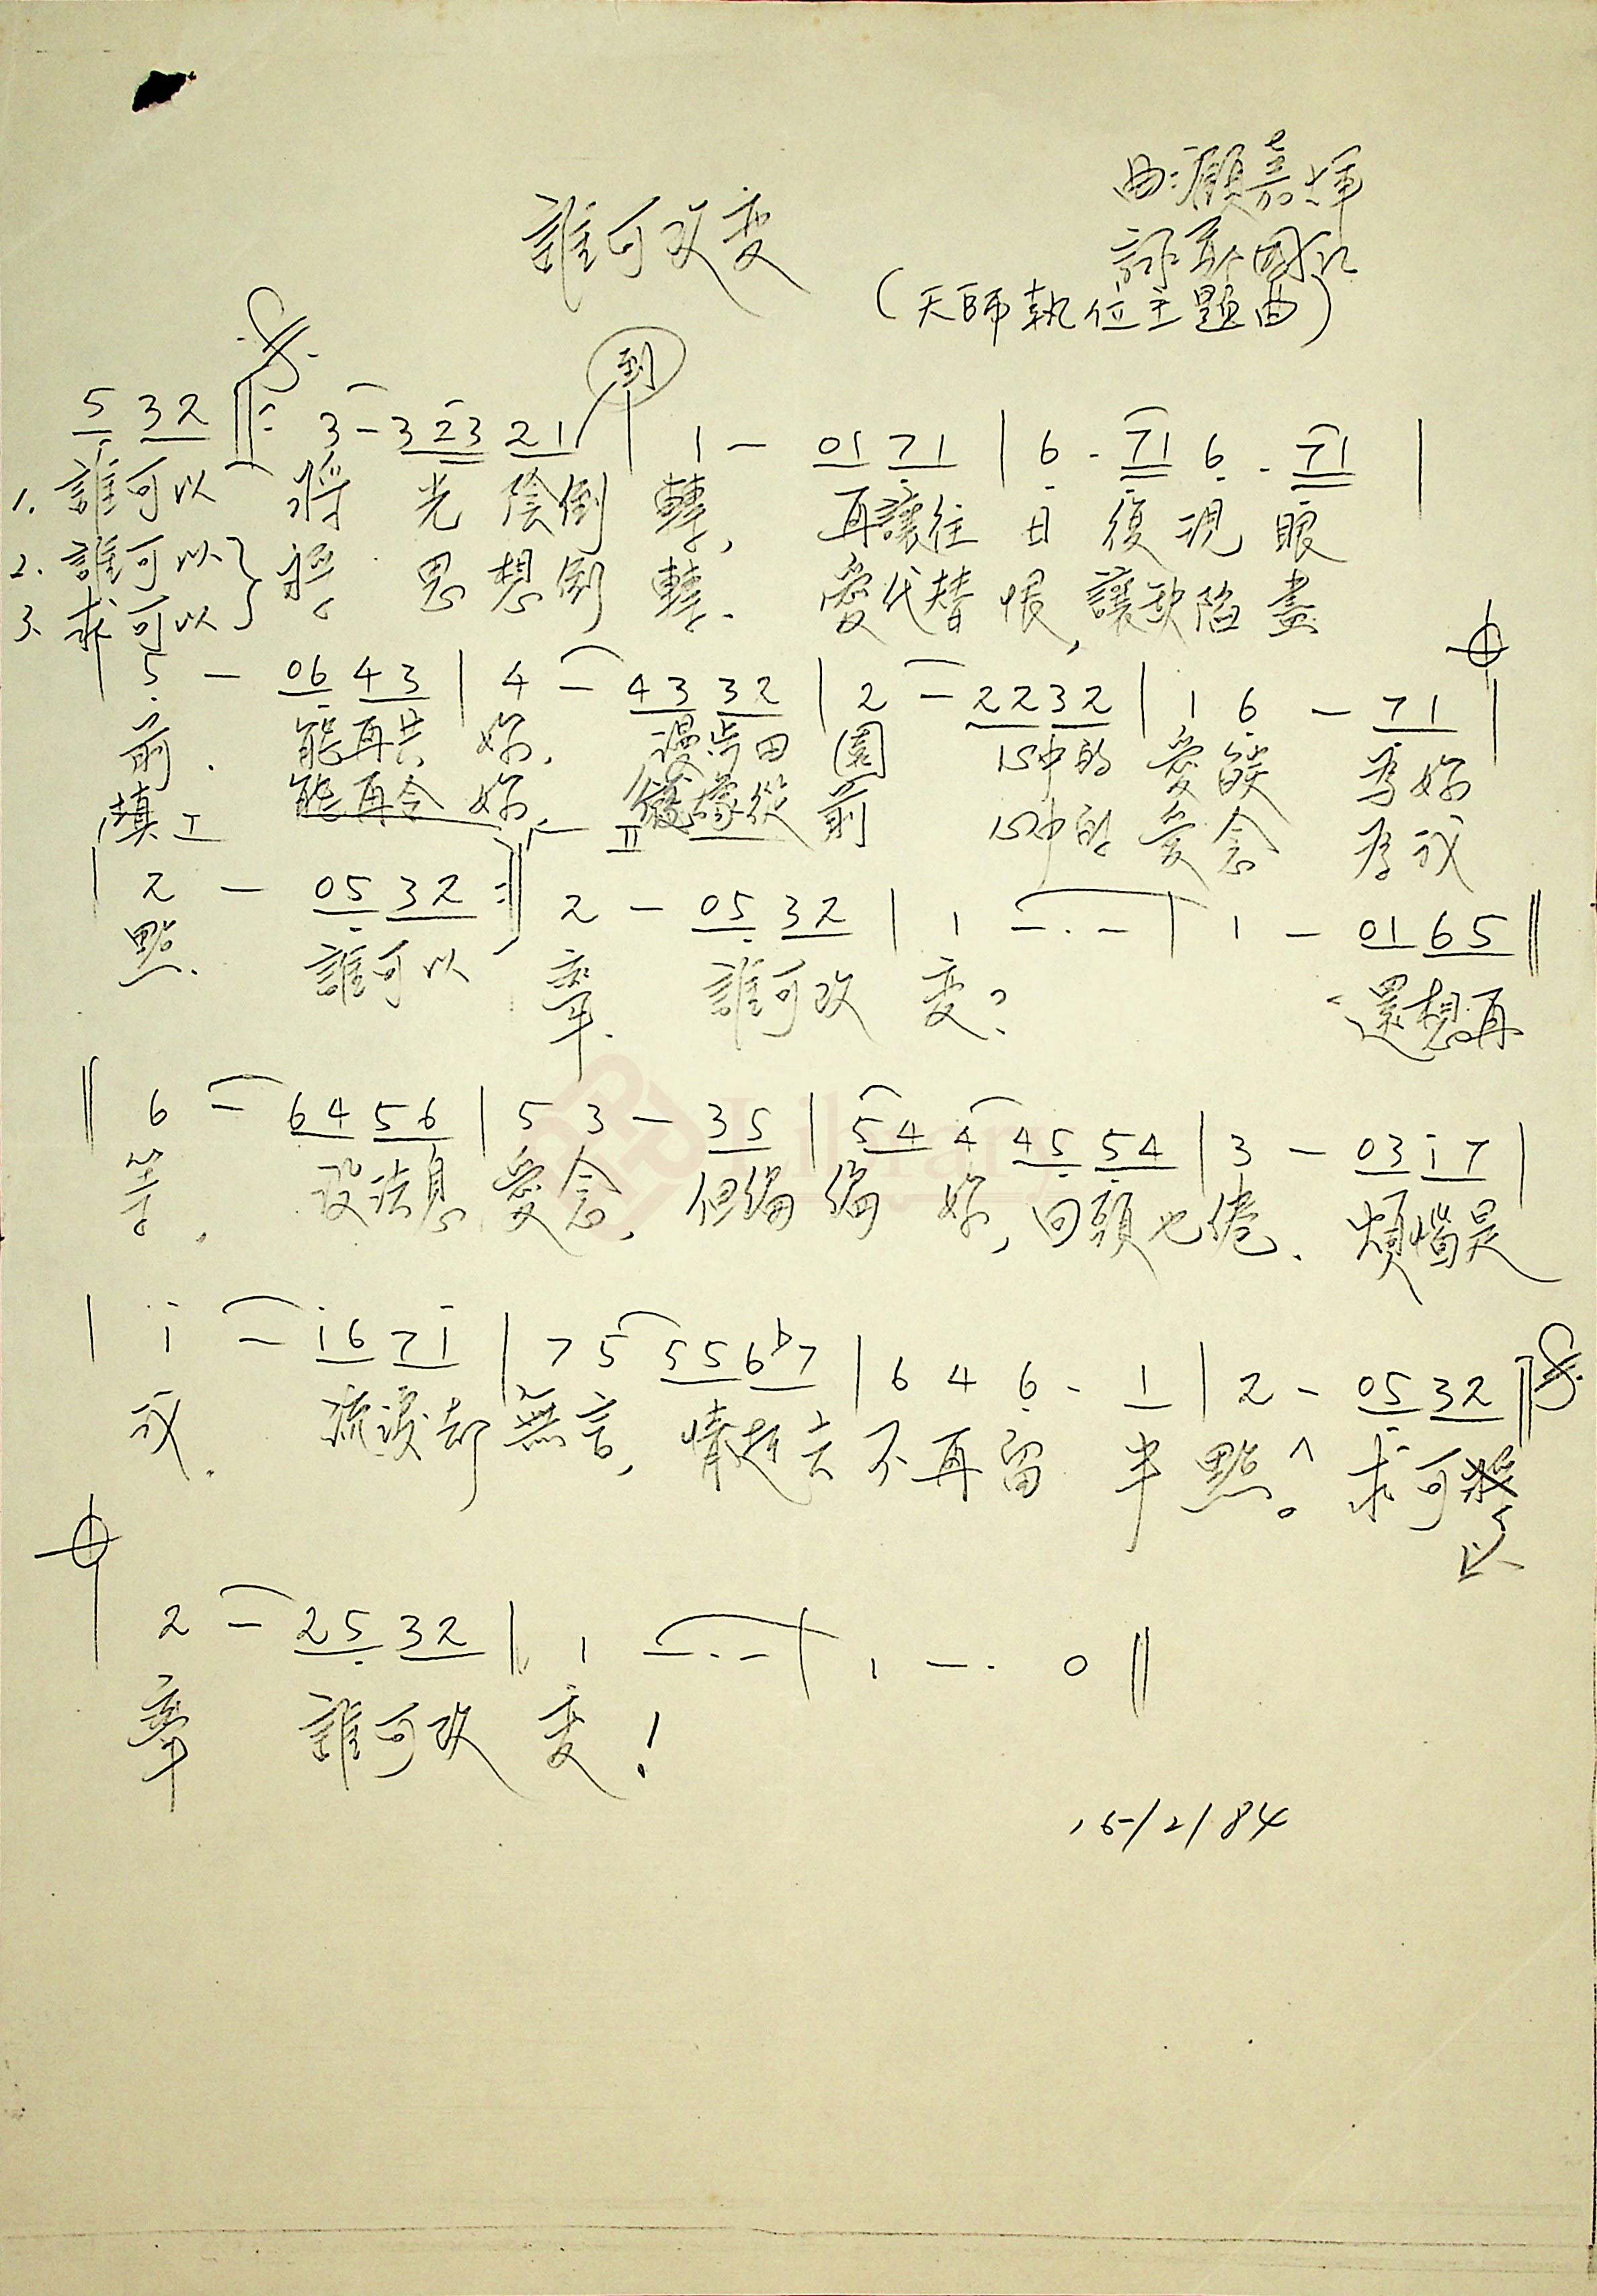 曲：顧嘉煇
誰可改変
詞：鄭國江
(天師執位主題曲)
到
5 32 ‖: 3 - 3 23 21 | 1 - 01 71 | 6 · 71 6 · 71 |
1. 誰可以 將 光 陰倒 轉， 再讓往 日 復現 眼
2. 誰可以 } 將 思 想 倒 轉． 愛代替 恨，讓缺陷 盡
3. 求可以
5 - 06 43 | 4 - 43 32 | 2 - 22 32 | 1 6 - 71 |
前． 能再共 妳， 漫步田 園 心中的 愛燄 為妳
填上 能再令 妳 緣從 前 心中的 愛念 為我
| 2 - 05 32 :‖ II 2 - 05 32 | 1 - · - | 1 - 01 65 ‖
點． 誰可以 牽． 誰可改 変？ 還想再
‖ 6 - 64 56 | 5 3 - 35 | 54 4 45 54 | 3 - 03 i7 |
等． 設法息 愛念， 但偏偏 妳，回頭也倦． 煩惱是
| i - i6 7i | 7 5 55 6♭7 | 6 4 6 · 1 | 2 - 05 32 ‖
我． 流淚却無言， 情逝去不再留 半點。 求可
以
2 - 25 32 | 1 - · - | 1 - · 0 ‖
牽 誰可改 変！
15/2/84
Library